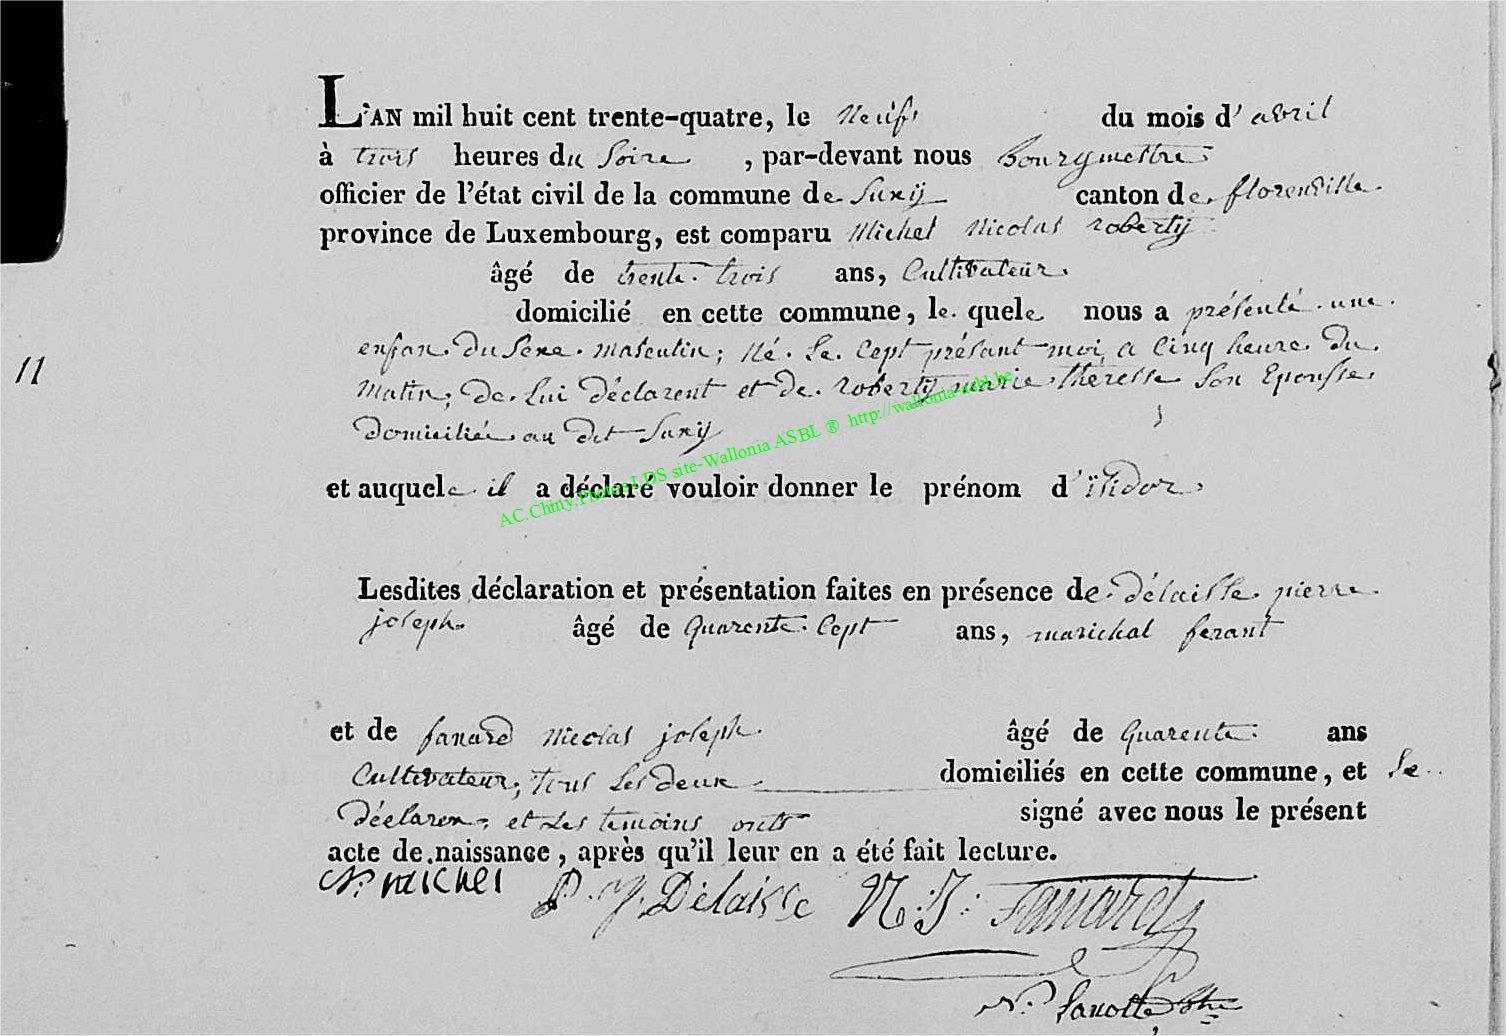 L'AN mil huit cent trente-quatre, le Neuf du mois d' avril
à trois heures du Soire , par-devant nous Bourgmestre
officier de l'état civil de la commune de Suxÿ canton de florenville
province de Luxembourg, est comparu Michel Nicolas robertÿ
âgé de trente trois ans, Cultivateur
domicilié en cette commune, le quele nous a présenté une
11
enfan du Sexe masculin; Né Le Cept présant moi, a Cinq heure du
Matin; de Lui déclarent et de robertÿ marie theresse Son Epousse
domiciliée au dit Suxÿ ;
et auquele il a déclaré vouloir donner le prénom d' ïsidor
AC.Chiny.Photos LDS site-Wallonia ASBL ® http://wallonia-asbl.be
Lesdites déclaration et présentation faites en présence de délaisse pierre
joseph âgé de Quarente Cept ans, marichal ferant
et de fanard Nicolas joseph âgé de Quarente ans
Cultivateur, tous Les deux domiciliés en cette commune, et Le
déclaren, et Les temoins onts signé avec nous le présent
acte de naissance, après qu'il leur en a été fait lecture.
N. Michel P. J. Delaisse N: J: Fanard